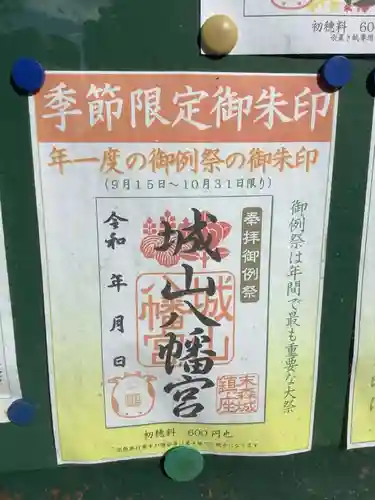 季節限定御朱印
年一度の御例祭の御朱印
(9月15日～10月31日限り)
御例祭は年間で最も重要な大祭
奉拝御例祭
城山八幡宮
城山
八幡宮
末森城
鎮座
令和 年 月 日
初穂料 600円也
初穂料 600